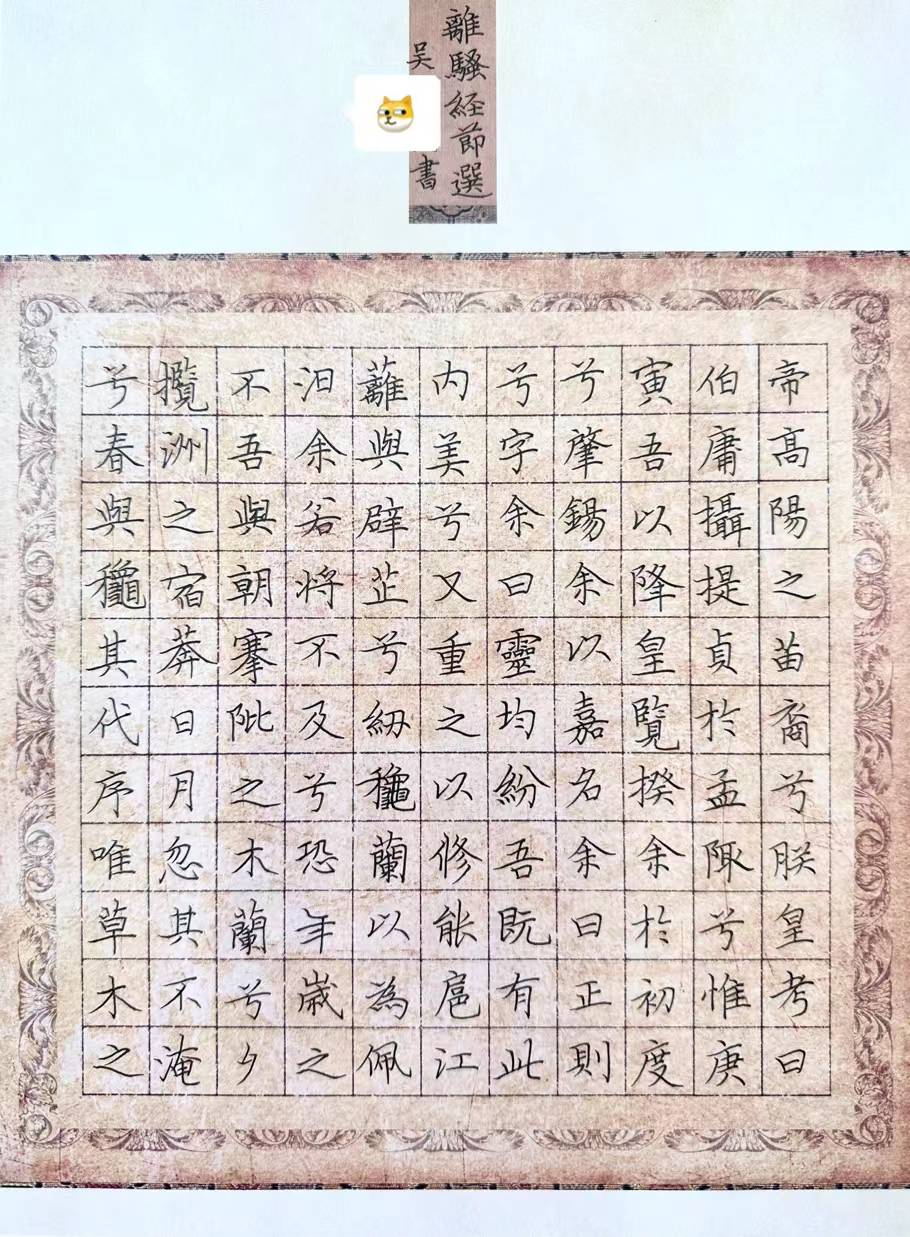 離騷経節選
吴
書
帝高陽之苗裔兮朕皇考曰
伯庸攝提貞於孟陬兮惟庚
寅吾以降皇覽揆余於初度
兮肇錫余以嘉名余曰正則
兮字余曰靈均紛吾既有此
内美兮又重之以修能扈江
蘺與辟芷兮紉龝蘭以為佩
汩余若将不及兮恐年歲之
不吾與朝搴阰之木蘭兮夕
攬洲之宿莽日月忽其不淹
兮春與龝其代序唯草木之